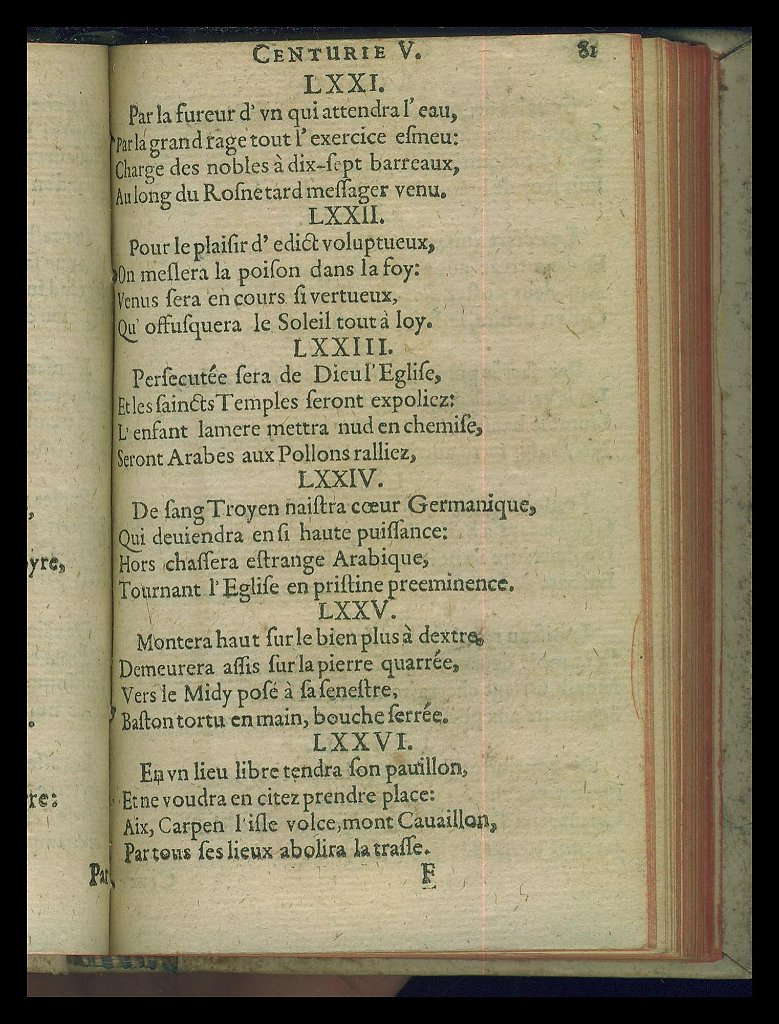 CENTURIE V. 81
LXXI.
Par la fureur d' vn qui attendra l' eau,
Par la grand rage tout l' exercice eſmeu:
Charge des nobles à dix-ſept barreaux,
Au long du Roſne tard meſſager venu.
LXXII.
Pour le plaiſir d' edict voluptueux,
On meſlera la poiſon dans la foy:
Venus ſera en cours ſi vertueux,
Qu' offuſquera le Soleil tout à loy.
LXXIII.
Perſecutée ſera de Dieu l' Egliſe,
Et les ſaincts Temples ſeront expoliez:
L' enfant la mere mettra nud en chemiſe,
Seront Arabes aux Pollons ralliez,
LXXIV.
De ſang Troyen naiſtra cœur Germanique,
Qui deuiendra en ſi haute puiſſance:
Hors chaſſera eſtrange Arabique,
Tournant l' Egliſe en priſtine preeminence.
LXXV.
Montera haut ſur le bien plus à dextre,
Demeurera aſſis ſur la pierre quarrée,
Vers le Midy poſé à ſa ſeneſtre,
Baſton tortu en main, bouche ſerrée.
LXXVI.
En vn lieu libre tendra ſon pauillon,
Et ne voudra en citez prendre place:
Aix, Carpen l' iſle volce, mont Cauaillon,
Par tous ſes lieux abolira la traſſe.
F
yre,
re:
Par